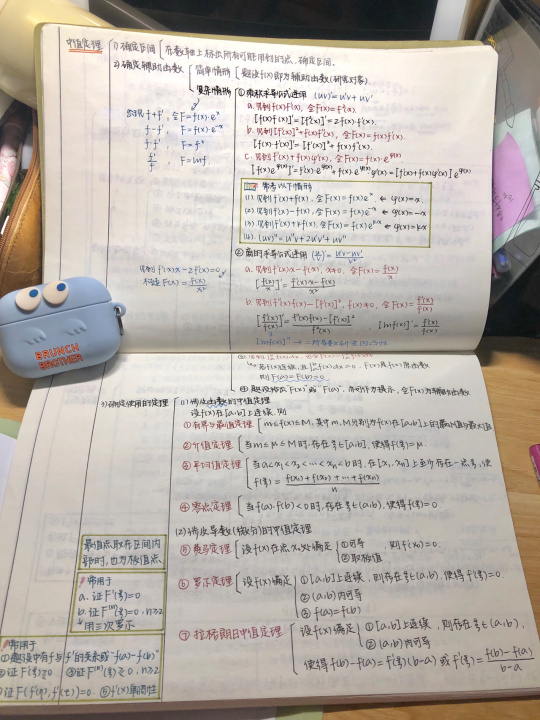 中值定理
1) 确定区间
在数轴上标出所有可能用到的点、确定区间。
2) 确定辅助函数
简单情形
题设f(x)即为辅助函数(研究对象).
复杂情形
① 乘积求导公式逆用 (uv)'=u'v+uv'
a. 见到f(x)f'(x), 令F(x)=f²(x).
[f(x)f(x)]'=[f²(x)]'=2f(x)·f'(x).
b. 见到[f'(x)]²+f(x)f''(x), 令F(x)=f(x)f'(x).
[f(x)·f'(x)]'=[f'(x)]²+f(x)f''(x).
c. 见到f'(x)+f(x)φ'(x), 令F(x)=f(x)·e^φ(x)
[f(x)e^φ(x)]'=f'(x)·e^φ(x)+f(x)·e^φ(x)φ'(x)=[f'(x)+f(x)φ'(x)]e^φ(x)
见 f+f', 令F=f(x)·e^x
f-f', F=f(x)·e^-x
f·f', F=f²
f'/f, F=lnf.
常考以下情形
(1). 见到f'(x)+f(x), 令F(x)=f(x)e^x. ← φ(x)=x.
(2). 见到f'(x)-f(x), 令F(x)=f(x)e^-x ← φ(x)=-x
(3). 见到f'(x)+kf(x), 令F(x)=f(x)e^kx ← φ(x)=kx
(4). (uv)''=u''v+2u'v'+uv''
② 商的求导公式逆用 (u/v)'=(u'v-uv')/v²
a. 见到f'(x)x-f(x), x≠0, 令F(x)=f(x)/x
[f(x)/x]'=(f'(x)x-f(x))/x²
见到f'(x)x-2f(x)=0
F(x)=f(x)/x²
b. 见到f''(x)f(x)-[f'(x)]², f(x)≠0, 令F(x)=f'(x)/f(x)
[f'(x)/f(x)]'=(f''(x)f(x)-[f'(x)]²)/f²(x) [lnf(x)]'=f'(x)/f(x)
[lnf(x)]''
BRUNCH
BROTHER
则F(a)=F(b)=0.
3) 确定使用的定理
(1) 涉及函数的中值定理
设f(x)在[a,b]上连续, 则
① 有界与最值定理
m≤f(x)≤M, 其中m,M分别为f(x)在[a,b]上的最小值与最大值
② 介值定理
当m≤μ≤M时, 存在ξ∈[a,b], 使得f(ξ)=μ.
③ 平均值定理
当a<x₁<x₂<…<xn<b时, 在[x₁,xn]上至少存在一点ξ, 使
f(ξ)=(f(x₁)+f(x₂)+…+f(xn))/n
④ 零点定理
当f(a)·f(b)<0时, 存在ξ∈(a,b), 使得f(ξ)=0
(2) 涉及导数(微分)的中值定理
⑤ 费马定理
设f(x)在点x₀处满足
①可导
②取极值
则f'(x₀)=0.
最值点取在区间内
部时, 也为极值点.
⑥ 罗尔定理
设f(x)满足
①[a,b]上连续
②(a,b)内可导
③f(a)=f(b)
则存在ξ∈(a,b), 使得f'(ξ)=0.
常用于
a. 证F'(ξ)=0
b. 证F⁽ⁿ⁾(ξ)=0, n≥2
用三次罗尔
⑦ 拉格朗日中值定理
设f(x)满足
①[a,b]上连续
②(a,b)内可导
则存在ξ∈(a,b),
使得f(b)-f(a)=f'(ξ)(b-a) 或 f'(ξ)=(f(b)-f(a))/(b-a)
常用于
①题设中有f与f'的关系或"f(a)-f(b)"
②证F'(ξ)≥0 ③证F⁽ⁿ⁾(ξ)≥0, n≥2
④证F(f'(η),f'(τ))=0 ⑤f'(x)单调性